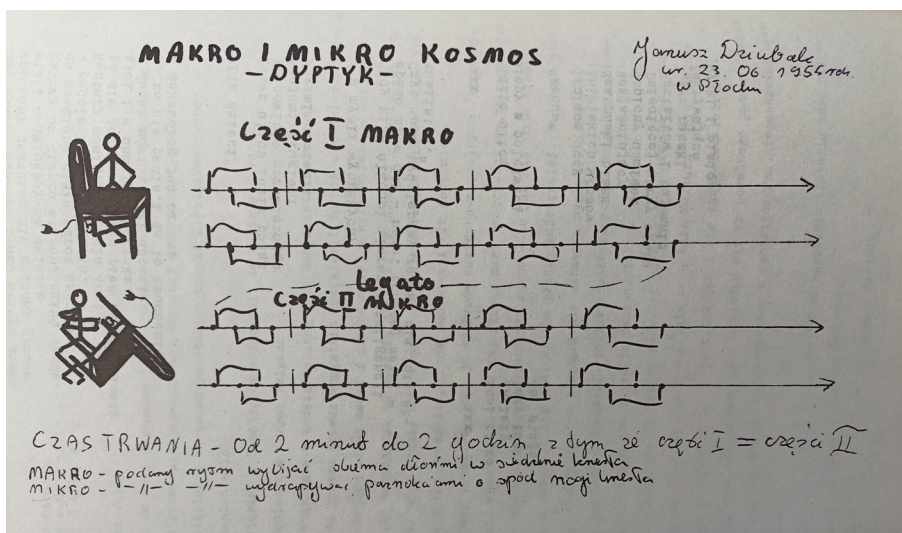 MAKRO I MIKRO KOSMOS
-DYPTYK-
Janusz Dziubak
ur. 23. 06 1955 rok.
w Płocku
Część I MAKRO
legato
Część II MIKRO
CZAS TRWANIA - Od 2 minut do 2 godzin z tym że część I = części II
MAKRO - podany rytm wybijać obiema dłońmi w siedzenie krzesła
MIKRO - -//- -//- wydrapywać paznokciami o spód nogi krzesła